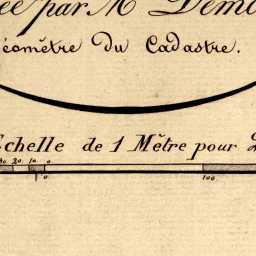 ée par Mr Dem
éomètre du Cadastre.
Echelle de 1 Mètre pour 2
20 10 0 100